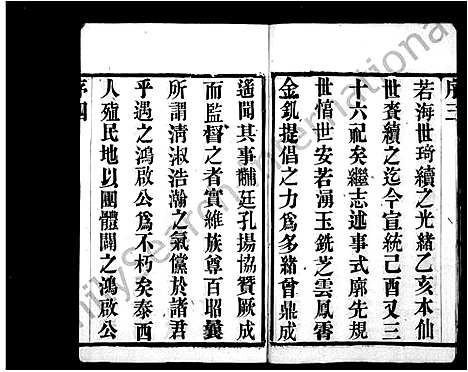 序三
若海世琦續之光緒乙亥本仙
世賚續之迄今宣統己酉又三
十六祀矣繼志述事式廓先規
世愔世安若湧玉銑芝雲鳳霄
金釚提倡之力爲多緒曾鼎成
遥聞其事黼廷孔揚協贊厥成
而監督之者實維族尊百昭曩
所謂清淑浩瀚之氣儻於諸君
乎遇之鴻啟公爲不朽矣泰西
人殖民地以團體闢之鴻啟公
序四